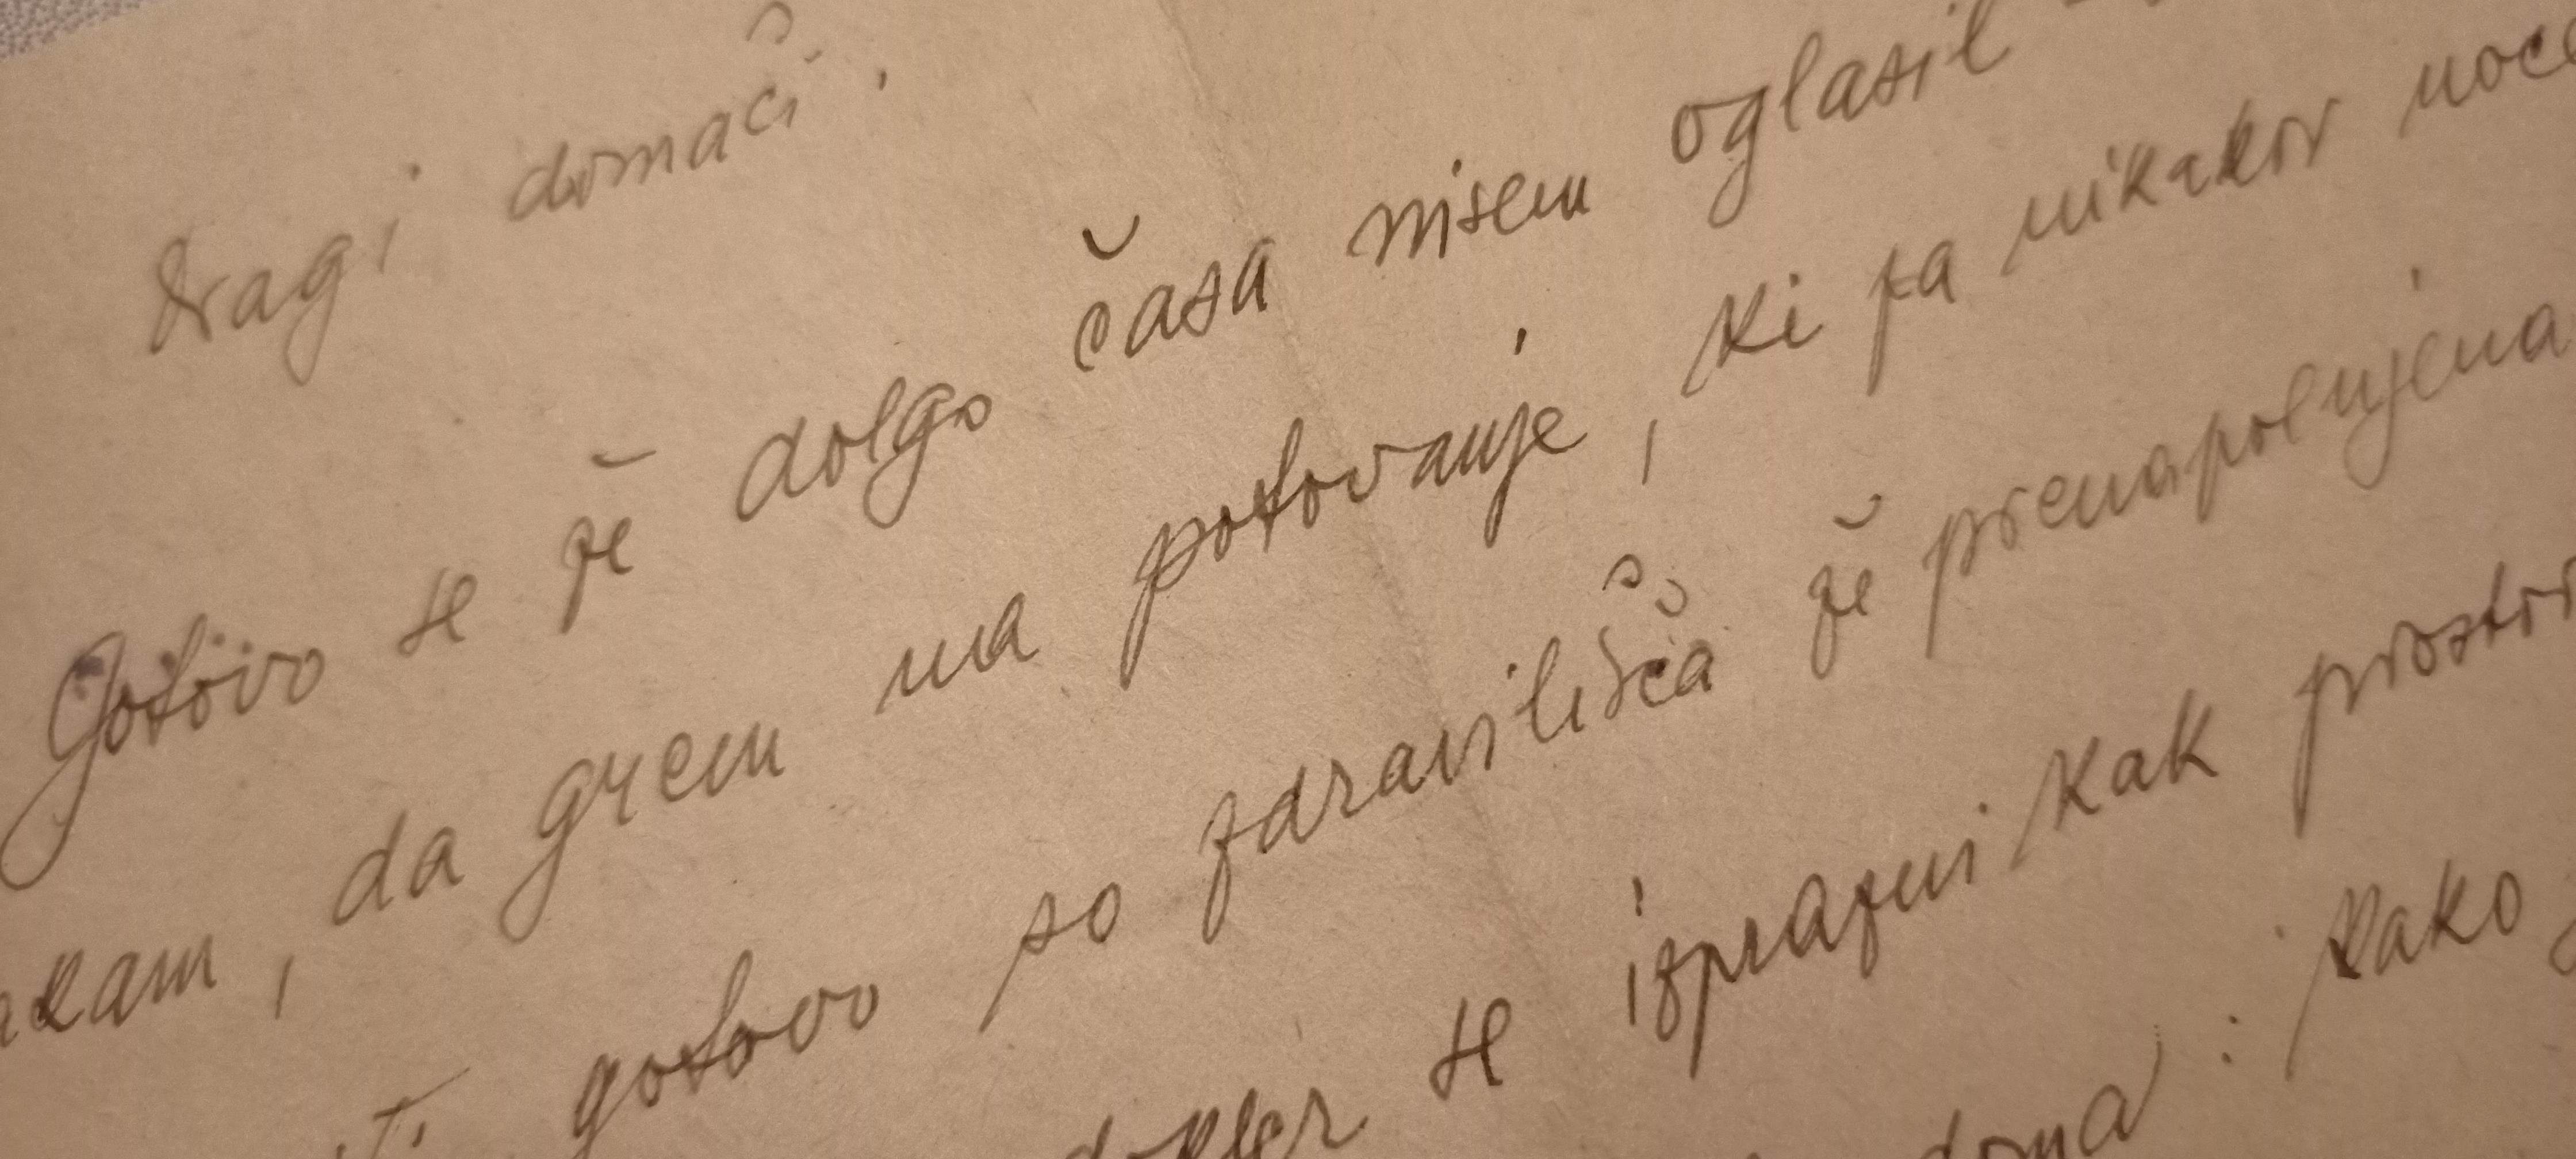 Dragi domači!
Gotovo se že dolgo časa nisem oglasil
da grem na potovanje, ki pa nikakor
gotovo so zdravilišča že prenapolnjena
dokler se izprazni kak
doma: Kako